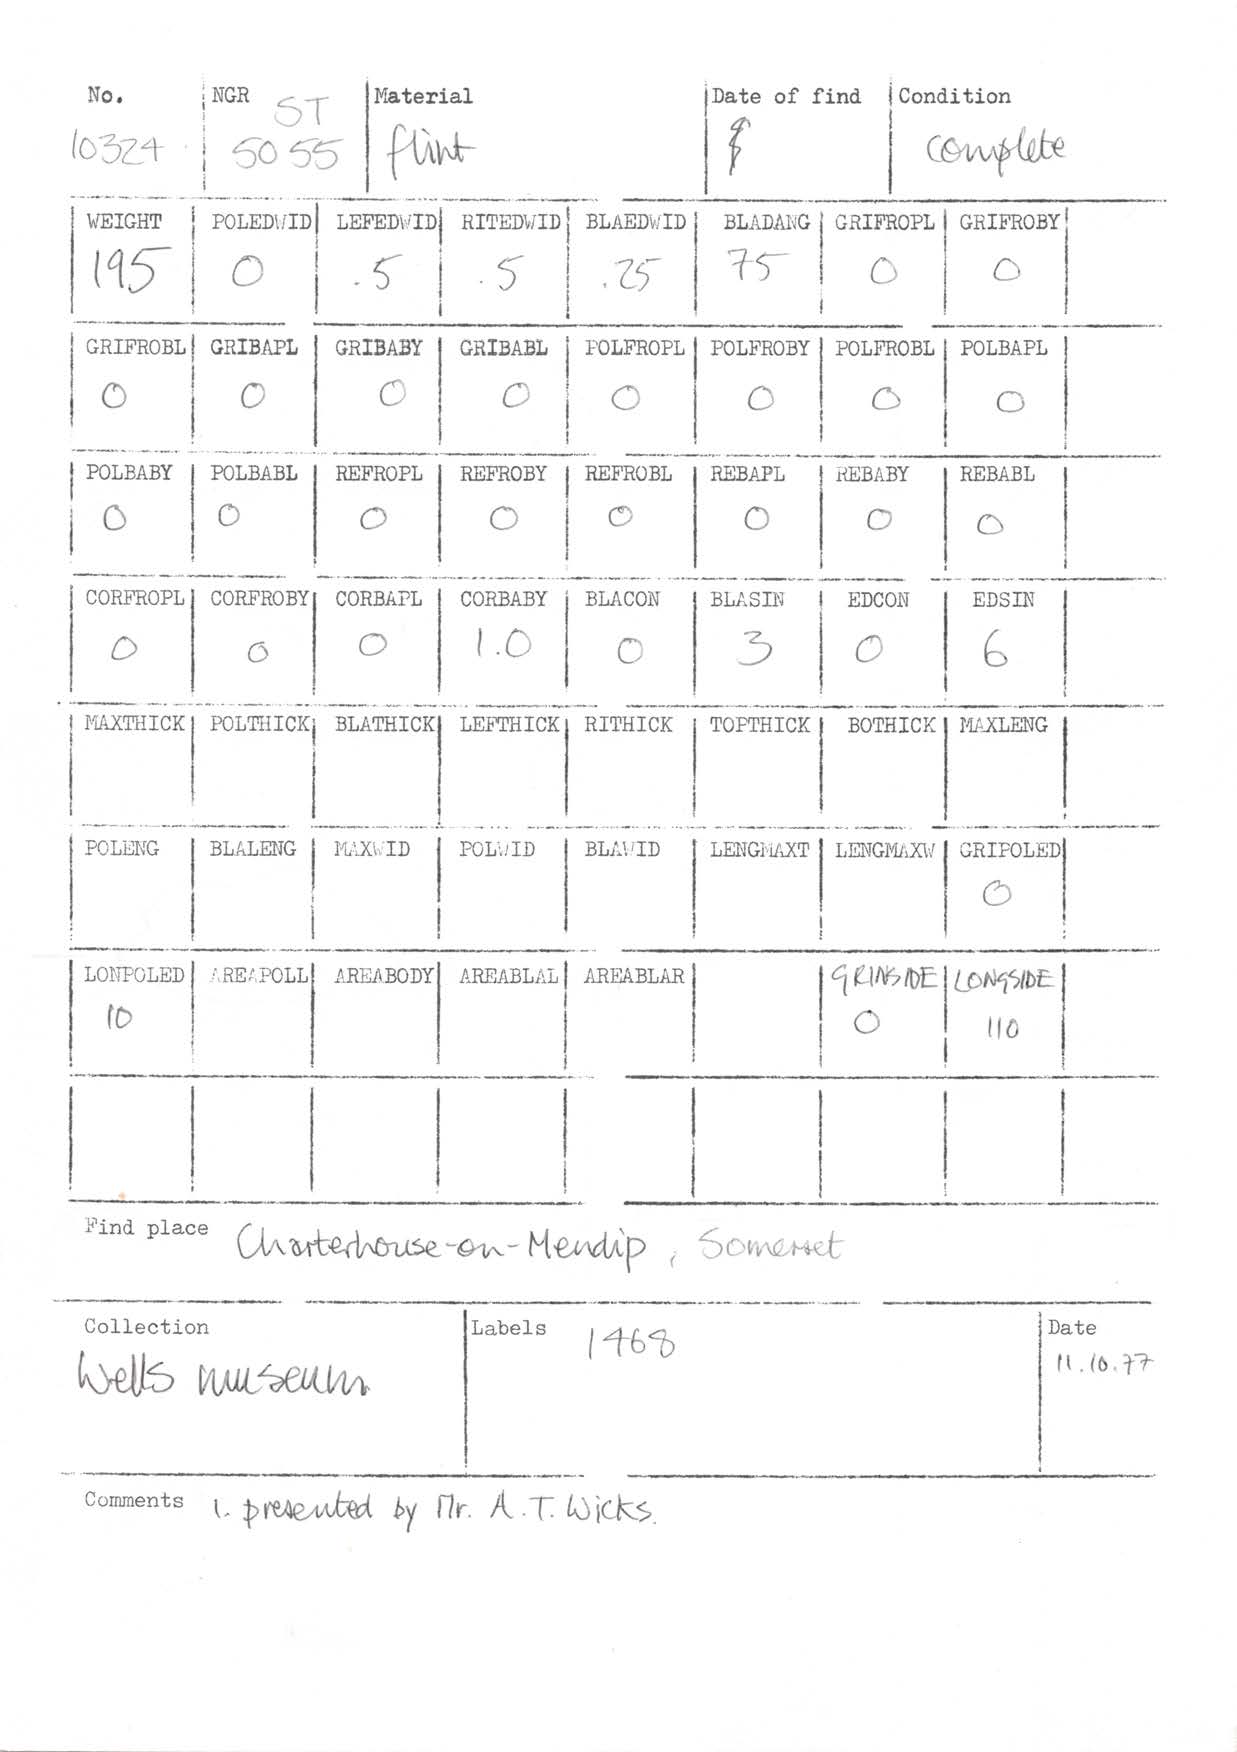 No. NGR ST Material Date of find Condition
10324 5055 flint complete
WEIGHT POLEDWID LEFEDWID RITEDWID BLAEDWID BLADANG GRIFROPL GRIFROBY
195 0 .5 .5 .25 75 0 0
GRIFROBL GRIBAPL GRIBABY GRIBABL POLFROPL POLFROBY POLFROBL POLBAPL
0 0 0 0 0 0 0 0
POLBABY POLBABL REFROPL REFROBY REFROBL REBAPL REBABY REBABL
0 0 0 0 0 0 0 0
CORFROPL CORFROBY CORBAPL CORBABY BLACON BLASIN EDCON EDSIN
0 0 0 1.0 0 3 0 6
MAXTHICK POLTHICK BLATHICK LEFTHICK RITHICK TOPTHICK BOTHICK MAXLENG
POLENG BLALENG MAXWID POLWID BLAWID LENGMAXT LENGMAXW GRIPOLED
0
LONPOLED AREAPOLL AREABODY AREABLAL AREABLAR GRINSIDE LONGSIDE
10 0 110
Find place Charterhouse-on-Mendip, Somerset
Collection Labels 1468 Date
Wells museum 11.10.77
Comments 1. presented by Mr. A.T. Wicks.